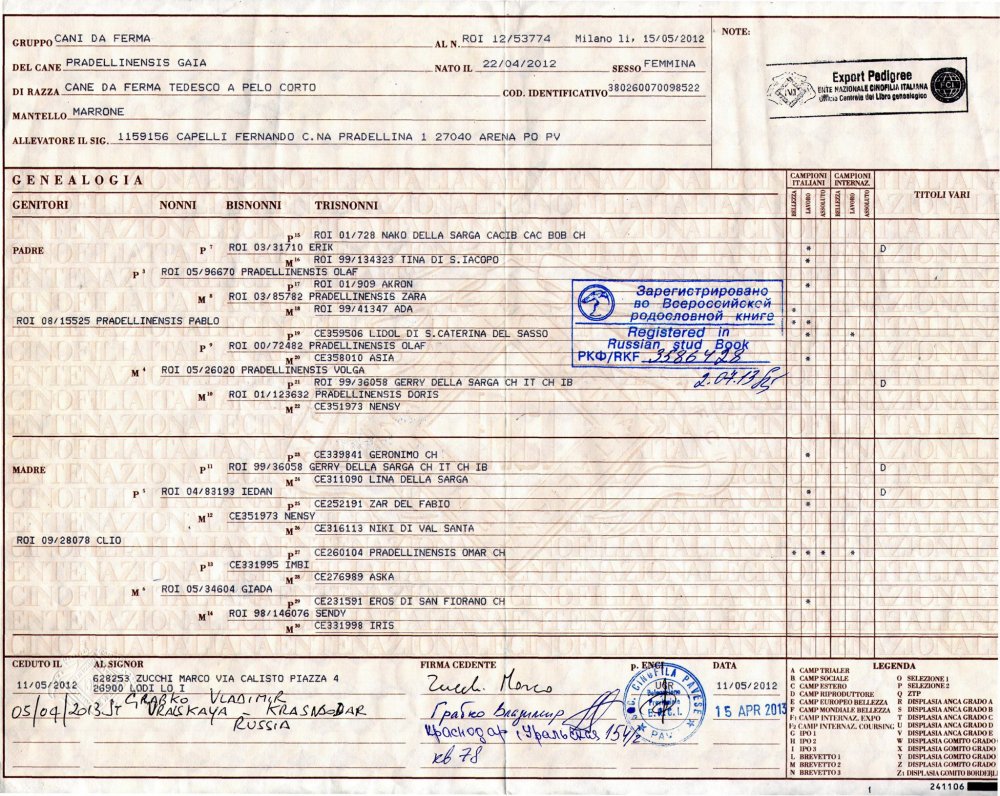 GRUPPO CANI DA FERMA AL N. ROI 12/53774 Milano li, 15/05/2012 NOTE:
DEL CANE PRADELLINENSIS GAIA NATO IL 22/04/2012 SESSO FEMMINA
DI RAZZA CANE DA FERMA TEDESCO A PELO CORTO COD. IDENTIFICATIVO 380260070098522
MANTELLO MARRONE
ALLEVATORE IL SIG. 1159156 CAPELLI FERNANDO C.NA PRADELLINA 1 27040 ARENA PO PV
Export Pedigree
ENTE NAZIONALE CINOFILIA ITALIANA
Ufficio Centrale del Libro genealogico
FCI
GENEALOGIA
CAMPIONI ITALIANI CAMPIONI INTERNAZ.
GENITORI NONNI BISNONNI TRISNONNI BELLEZZA LAVORO ASSOLUTO BELLEZZA LAVORO ASSOLUTO TITOLI VARI
P 15 ROI 01/728 NAKO DELLA SARGA CACIB CAC BOB CH
PADRE P 7 ROI 03/31710 ERIK * D
M 16 ROI 99/134323 TINA DI S.IACOPO *
P 3 ROI 05/96670 PRADELLINENSIS OLAF
P 17 ROI 01/909 AKRON *
M 8 ROI 03/85782 PRADELLINENSIS ZARA
M 18 ROI 99/41347 ADA *
ROI 08/15525 PRADELLINENSIS PABLO * *
P 19 CE359506 LIDOL DI S.CATERINA DEL SASSO * *
P 9 ROI 00/72482 PRADELLINENSIS OLAF
M 20 CE358010 ASIA *
M 4 ROI 05/26020 PRADELLINENSIS VOLGA
P 21 ROI 99/36058 GERRY DELLA SARGA CH IT CH IB D
M 10 ROI 01/123632 PRADELLINENSIS DORIS
M 22 CE351973 NENSY
Зарегистрировано
во Всероссийской
родословной книге
Registered in
Russian stud Book
РКФ/RKF 3586428
2.07.13
P 23 CE339841 GERONIMO CH *
MADRE P 11 ROI 99/36058 GERRY DELLA SARGA CH IT CH IB D
M 24 CE311090 LINA DELLA SARGA
P 5 ROI 04/83193 IEDAN * D
P 25 CE252191 ZAR DEL FABIO *
M 12 CE351973 NENSY
M 26 CE316113 NIKI DI VAL SANTA
ROI 09/28078 CLIO
P 27 CE260104 PRADELLINENSIS OMAR CH * * * *
P 13 CE331995 IMBI
M 28 CE276989 ASKA
M 6 ROI 05/34604 GIADA
P 29 CE231591 EROS DI SAN FIORANO CH *
M 14 ROI 98/146076 SENDY
M 30 CE331998 IRIS
CEDUTO IL AL SIGNOR FIRMA CEDENTE p. ENCI DATA LEGENDA
11/05/2012 628253 ZUCCHI MARCO VIA CALISTO PIAZZA 4
26900 LODI LO I
Zucchi Marco 11/05/2012
05/04/2013 GRABKO VLADIMIR
URALSKAYA KRASNODAR
RUSSIA
Грабко Владимир
Краснодар, Уральская 154/2
кв 78
CINOFILA PAVESE
E.N.C.I.
PAV
15 APR 2013
A CAMP TRIALER
B CAMP SOCIALE
C CAMP ESTERO
D CAMP RIPRODUTTORE
E CAMP EUROPEO BELLEZZA
F CAMP MONDIALE BELLEZZA
F1 CAMP INTERNAZ. EXPO
F2 CAMP INTERNAZ. COURSING
G IPO 1
H IPO 2
I IPO 3
L BREVETTO 1
M BREVETTO 2
N BREVETTO 3
O SELEZIONE 1
P SELEZIONE 2
Q ZTP
R DISPLASIA ANCA GRADO A
S DISPLASIA ANCA GRADO B
T DISPLASIA ANCA GRADO C
U DISPLASIA ANCA GRADO D
V DISPLASIA ANCA GRADO E
W DISPLASIA GOMITO GRADO
X DISPLASIA GOMITO GRADO
Y DISPLASIA GOMITO GRADO
Z DISPLASIA GOMITO GRADO
Z1 DISPLASIA GOMITO BORDERL
1 241106